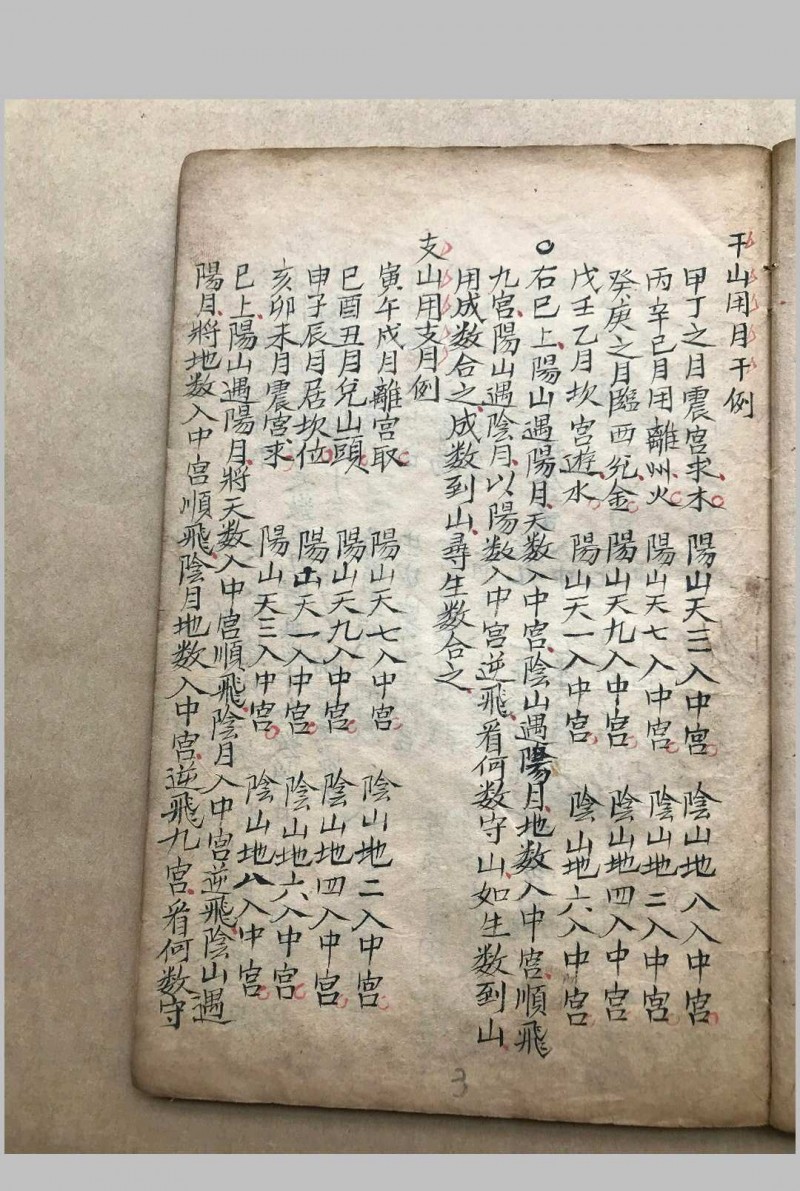 干山用月干例
甲丁之月震宮求木 陽山天三入中宮 陰山地八入中宮
丙辛巳月用離州火 陽山天七入中宮 陰山地二入中宮
癸庚之月臨西兌金 陽山天九入中宮 陰山地四入中宮
戊壬乙月坎宮遊水 陽山天一入中宮 陰山地六入中宮
○右巳上陽山遇陽月天数入中宮陰山遇陽月地数入中宮順飛
九宮陽山遇陰月以陽数入中宮逆飛看何数守山如生数到山
用成数合之成数到山尋生数合之
支山用支月例
寅午戍月離宮取 陽山天七入中宮 陰山地二入中宮
巳酉丑月兌山頭 陽山天九入中宮 陰山地四入中宮
申子辰月居坎位 陽山天一入中宮 陰山地六入中宮
亥卯未月震宮求 陽山天三入中宮 陰山地八入中宮
巳上陽山遇陽月將天数入中宮順飛陰月入中宮逆飛陰山遇
陽月將地数入中宮順飛陰月地数入中宮逆飛九宮看何数守
3